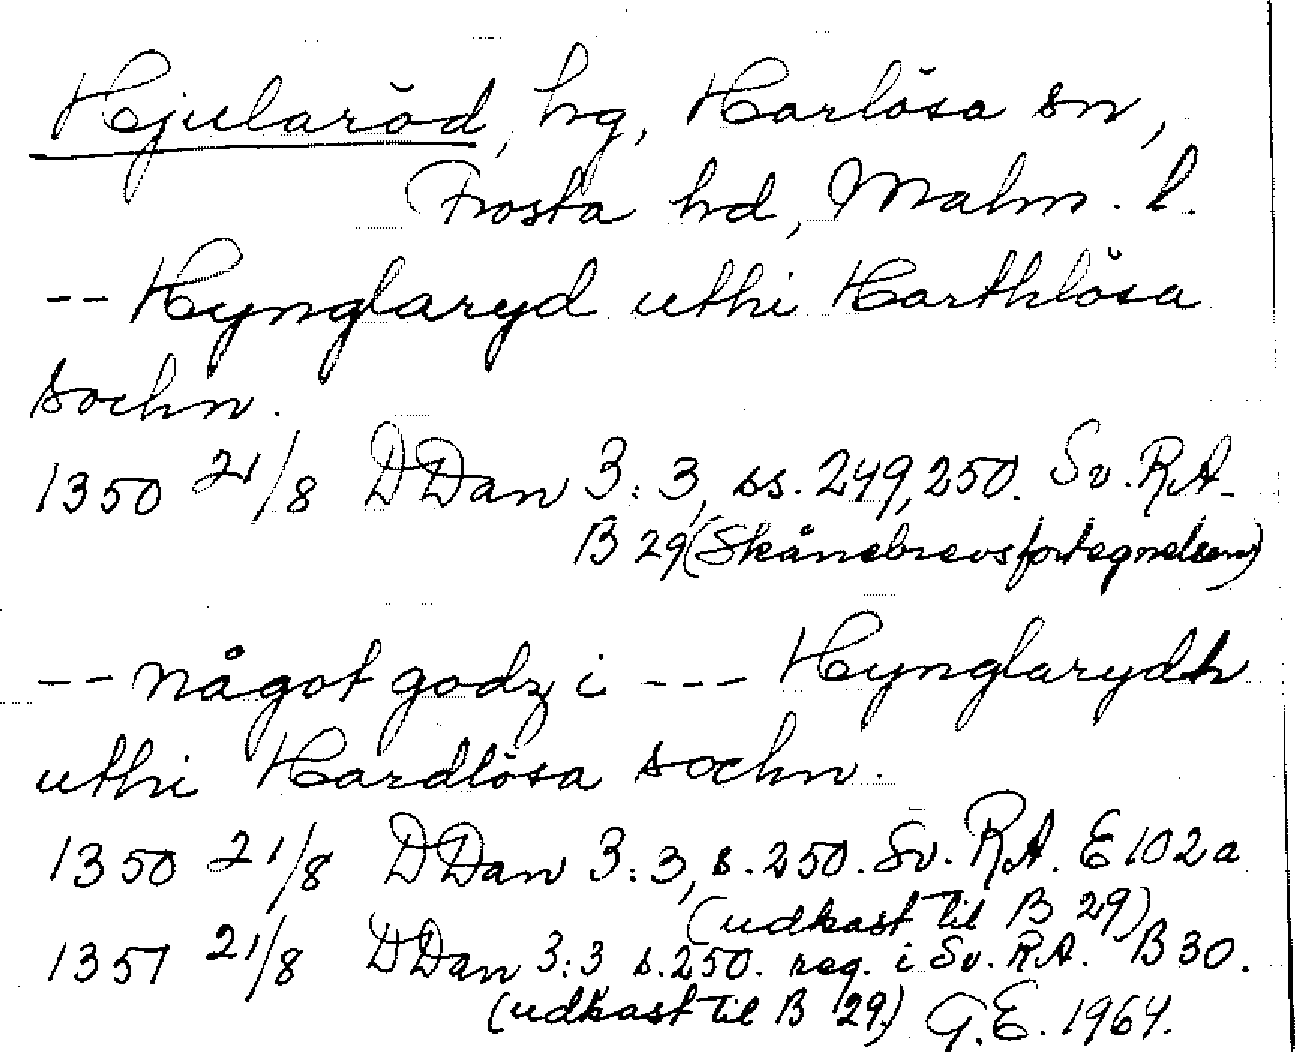 Hjularöd, hg, Harlösa sn,
Frosta hd, Malm. l.
-- Hynglaryd uthi Harthlösa
sochn.
1350 21/8 DDan 3:3, ss. 249, 250. Sv. RA.
B 29 (Skånebrevsfortegnelsen)
-- något godz i --- Hynglarydh
uthi Hardlösa sochn.
1350 21/8 DDan 3:3, s. 250. Sv. RA. E 102a
(udkast til B 29)
1351 21/8 DDan 3:3 s. 250. reg. i Sv. RA. B 30.
(udkast til B 29.) G.E. 1964.